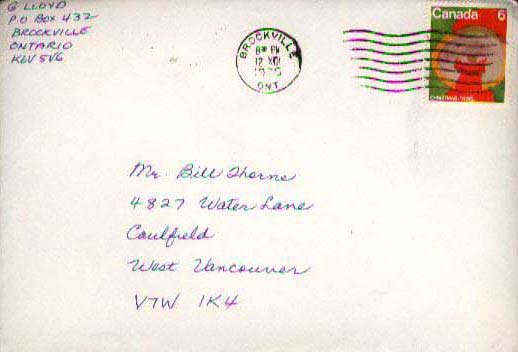 G LLOYD
P.O BOX 432
BROCKVILLE
ONTARIO
K6V 5V6
BROCKVILLE
8 PM
12 XII
1975
ONT
Canada 6
Mr. Bill Thorne
4827 Water Lane
Caulfield
West Vancouver
V7W 1K4